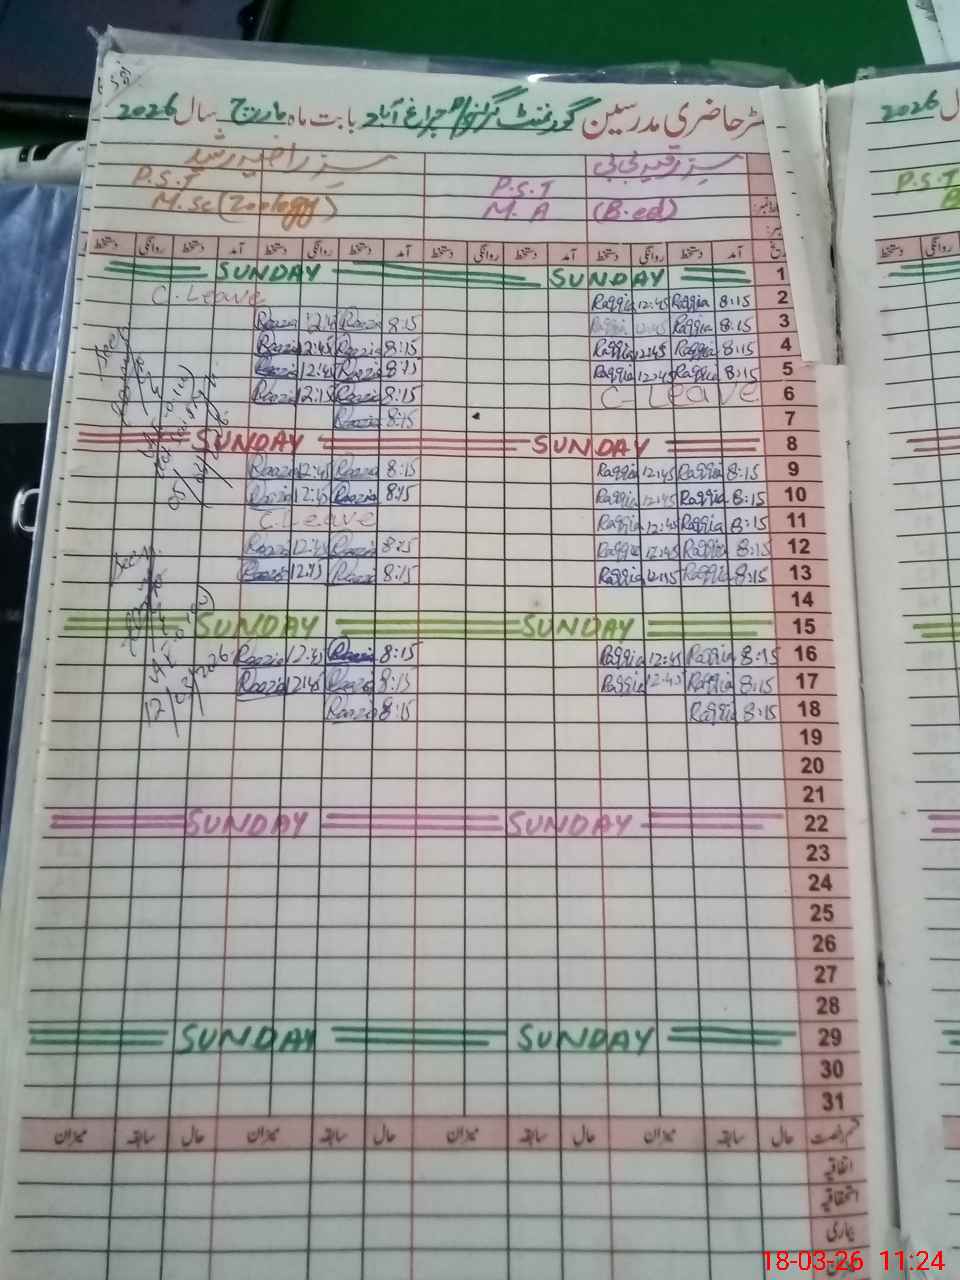 رجسٹر حاضری مدرسین گورنمنٹ گرلز چراغ آباد بابت ماہ مارچ سال 2026
2026
مسز رقیہ بی بی مسز راضیہ رشید
P.S.T P.S.T
M.A (B.ed) M.Sc (Zoology)
P.S.T
آمد دستخط روانگی دستخط آمد دستخط روانگی دستخط آمد دستخط روانگی دستخط آمد دستخط روانگی دستخط
SUNDAY SUNDAY 1
C.Leave Raqqia 12:45 Raqqia 8:15 2
Raazia 12:45 Raazia 8:15 Raqqia 12:45 Raqqia 8:15 3
Raazia 12:45 Raazia 8:15 Raqqia 12:45 Raqqia 8:15 4
Raazia 12:45 Raazia 8:15 Raqqia 12:45 Raqqia 8:15 5
Raazia 12:15 Raazia 8:15 C. Leave 6
Raazia 8:15 7
SUNDAY SUNDAY 8
Raazia 12:45 Raazia 8:15 Raqqia 12:45 Raqqia 8:15 9
Raazia 12:45 Raazia 8:15 Raqqia 12:45 Raqqia 8:15 10
C.Leave Raqqia 12:45 Raqqia 8:15 11
Raazia 12:45 Raazia 8:15 Raqqia 12:45 Raqqia 8:15 12
Raazia 12:45 Raazia 8:15 Raqqia 12:45 Raqqia 8:15 13
14
SUNDAY SUNDAY 15
Raazia 12:45 Raazia 8:15 Raqqia 12:45 Raqqia 8:15 16
Raazia 12:45 Raazia 8:15 Raqqia 12:45 Raqqia 8:15 17
Raazia 8:15 Raqqia 8:15 18
19
20
21
SUNDAY SUNDAY 22
23
24
25
26
27
28
SUNDAY SUNDAY 29
30
31
قسم رخصت حال سابقہ میزان حال سابقہ میزان حال سابقہ میزان حال سابقہ میزان
اتفاقیہ
استحقاقیہ
بیماری
Seen
Seen
18-03-26 11:24